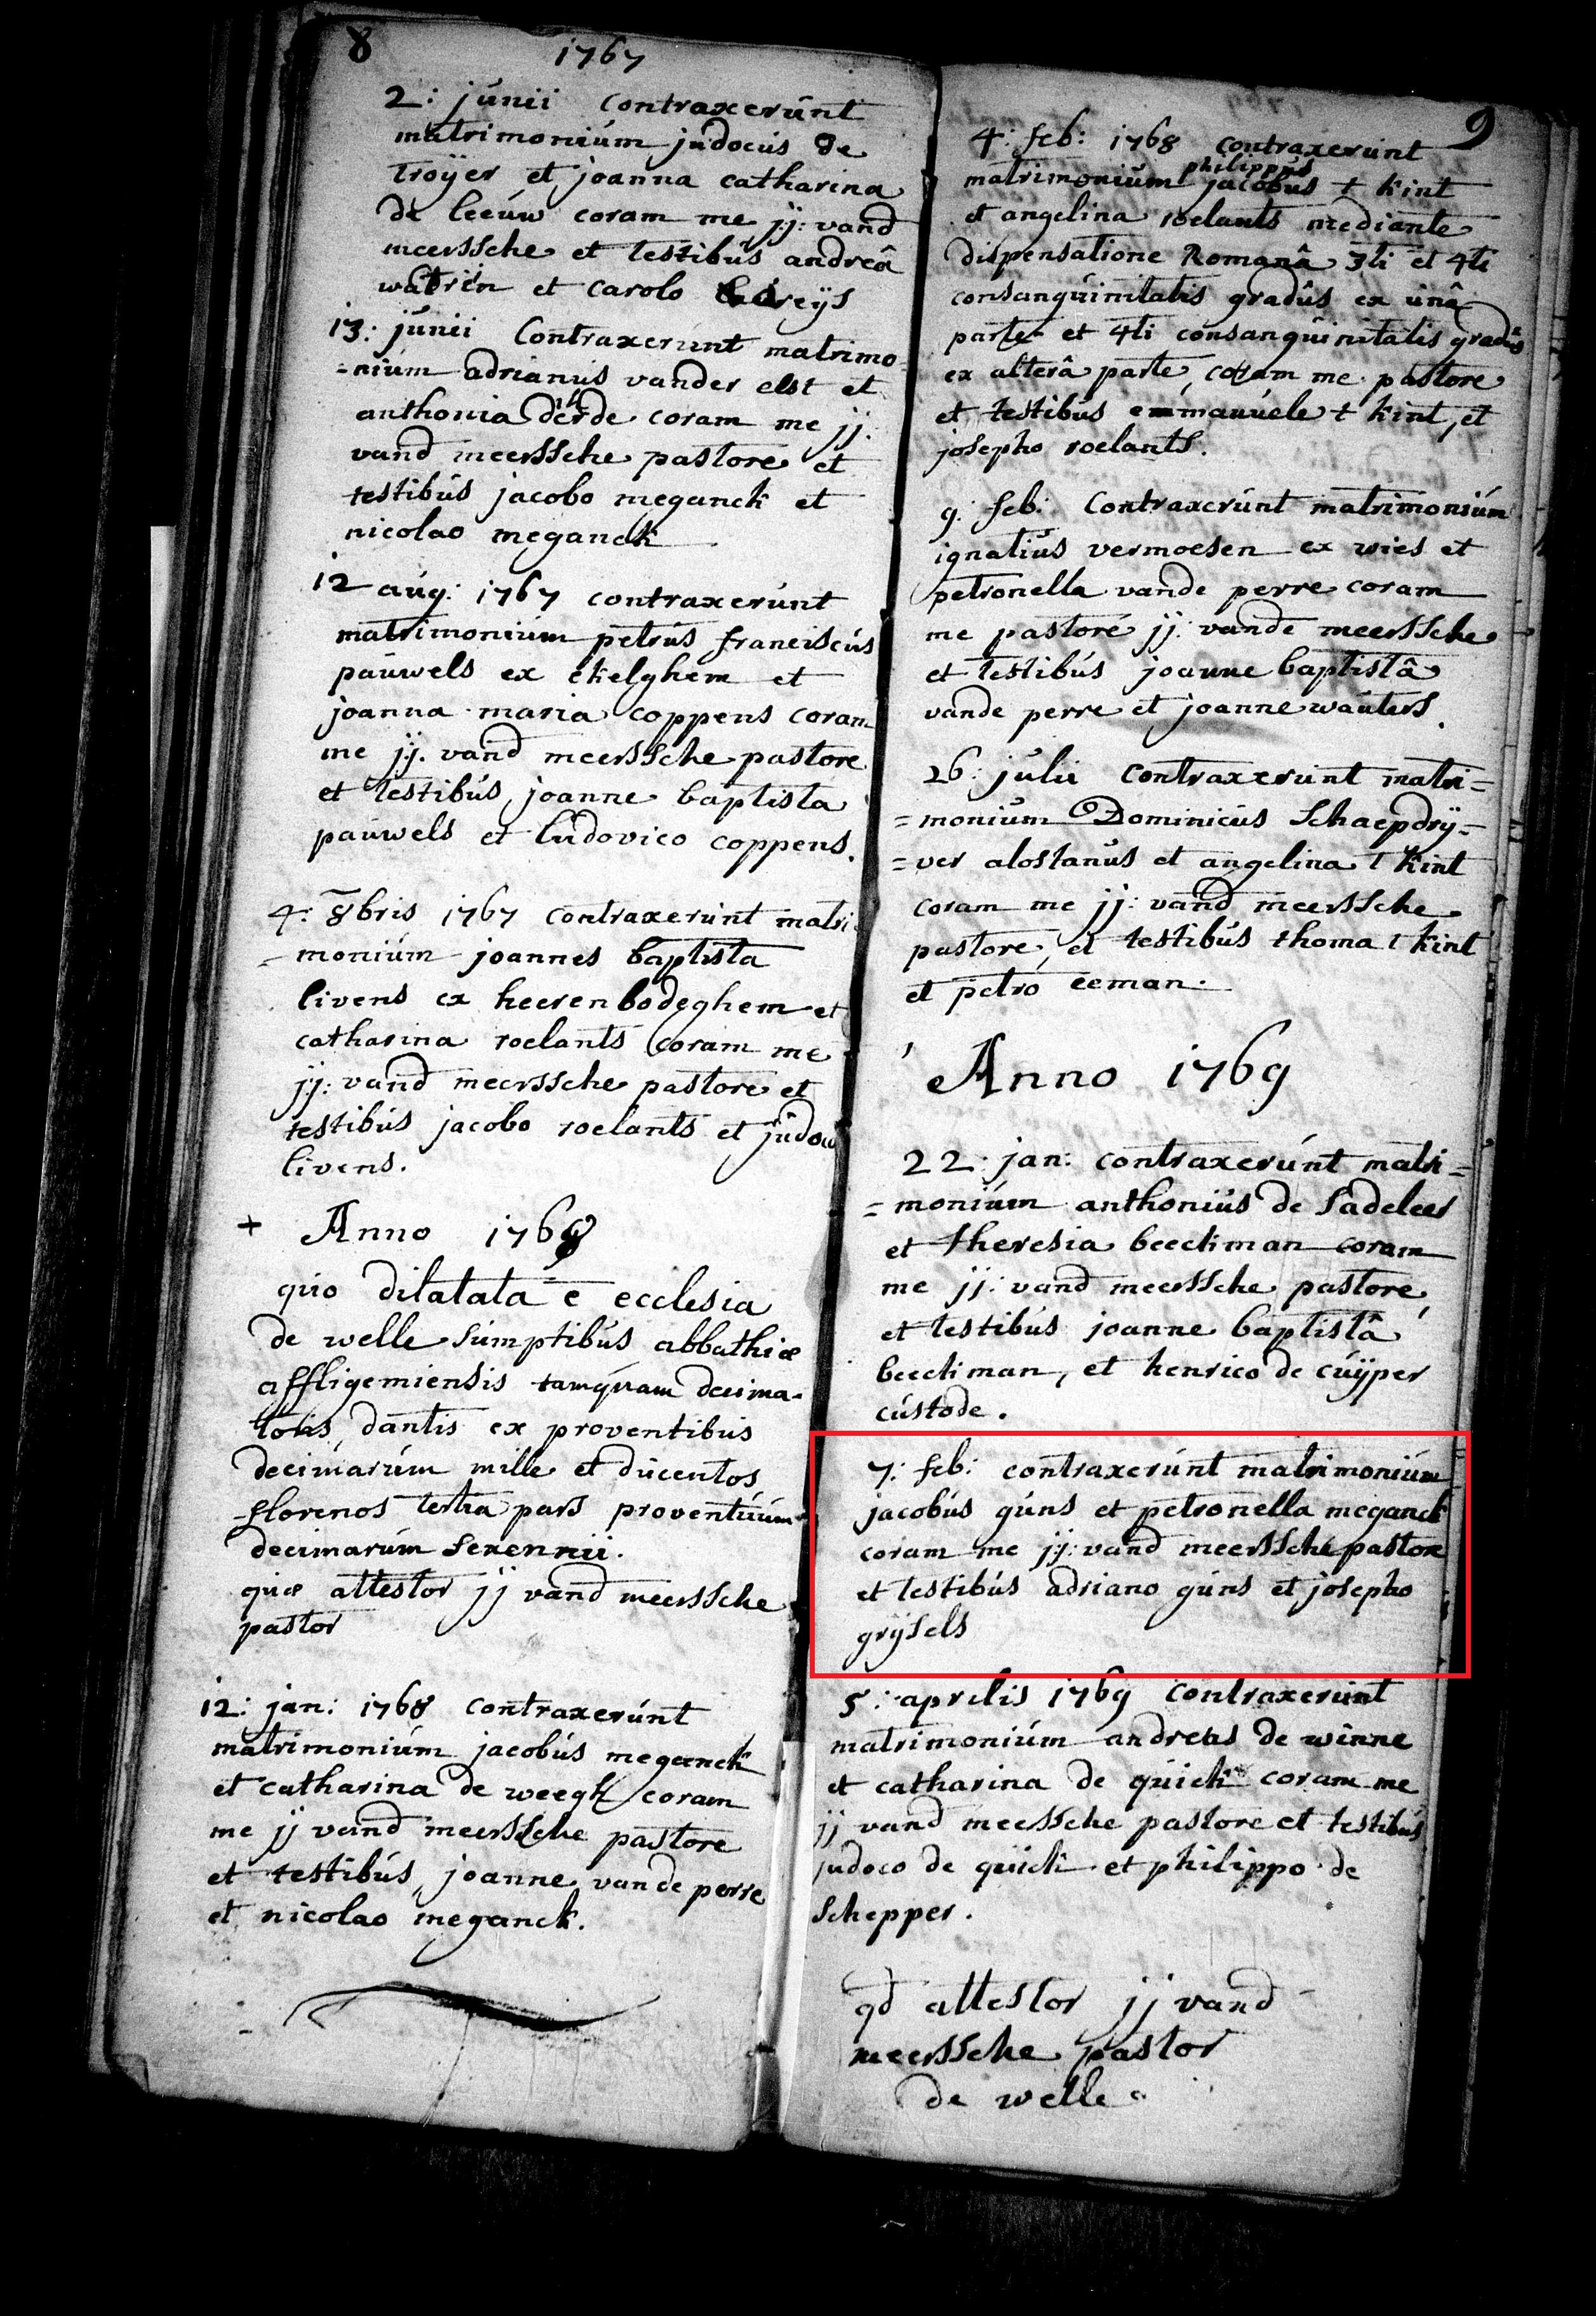 8
1767
2: junii contraxerunt
matrimonium judocus de
troÿer et joanna catharina
de leeuw coram me jj: vand
meerssche et testibus andreâ
watrin et carolo
13: junii Contraxerunt matrimo
=nium adrianus vander elst et
anthonia coram me jj:
vand meerssche pastore et
testibus jacobo meganck et
nicolao meganck
12 aug: 1767 contraxerunt
matrimonium petrus franciscus
pauwels ex ekelghem et
joanna maria coppens coram
me jj. vand meerssche pastore
et testibus joanne baptista
pauwels et ludovico coppens.
4: 8bris 1767 contraxerunt matri
=monium joannes baptista
livens ex heerenbodeghem et
catharina roelants coram me
jj: vand meerssche pastore et
testibus jacobo roelants et judoco
livens.
+ Anno 1768
quo dilatata e ecclesia
de welle sumptibus abbathiæ
affligemiensis tamquam decima-
toris, dantis ex proventibus
decimarum mille et ducentos
florenos tertia pars proventuum
decimarum sexennii.
quæ attestor jj vand meerssche
pastor
12: jan: 1768 contraxerunt
matrimonium jacobus meganck
et catharina de weegh coram
me jj vand meerssche pastore
et testibus joanne vande perre
et nicolao meganck.
9
4: feb: 1768 contraxerunt
philippus
matrimonium jacobus t kint
et angelina roelants mediante
dispensatione Romanâ 3ti et 4ti
consanguinitatis gradûs ex unâ
parte et 4ti consanguinitatis gradûs
ex alterâ parte, coram me pastore
et testibus emmanuele t kint, et
josepho roelants.
9: feb: Contraxerunt matrimonium
ignatius vermoesen ex wies et
petronella vande perre coram
me pastore jj: vande meerssche
et testibus joanne baptistâ
vande perre et joanne wauters.
26: julii contraxerunt matri=
=monium Dominicus Schaepdrÿ=
=ver alostanus et angelina t kint
coram me jj: vand meerssche
pastore, et testibus thoma t kint
et petro eeman.
Anno 1769
22: jan: contraxerunt matri=
=monium anthonius de Sadeleer
et theresia beeckman coram
me jj: vand meerssche pastore
et testibus joanne baptistâ
beeckman, et henrico de cuÿper
custode.
7: feb: contraxerunt matrimonium
jacobus guns et petronella meganck
coram me jj: vand meerssche pastore
et testibus adriano guns et josepho
grÿsels
5: aprilis 1769 contraxerunt
matrimonium andreas de winne
et catharina de quick coram me
jj vand meerssche pastore et testibus
judoco de quick et philippo de
schepper.
qd attestor jj vand
meerssche pastor
de welle